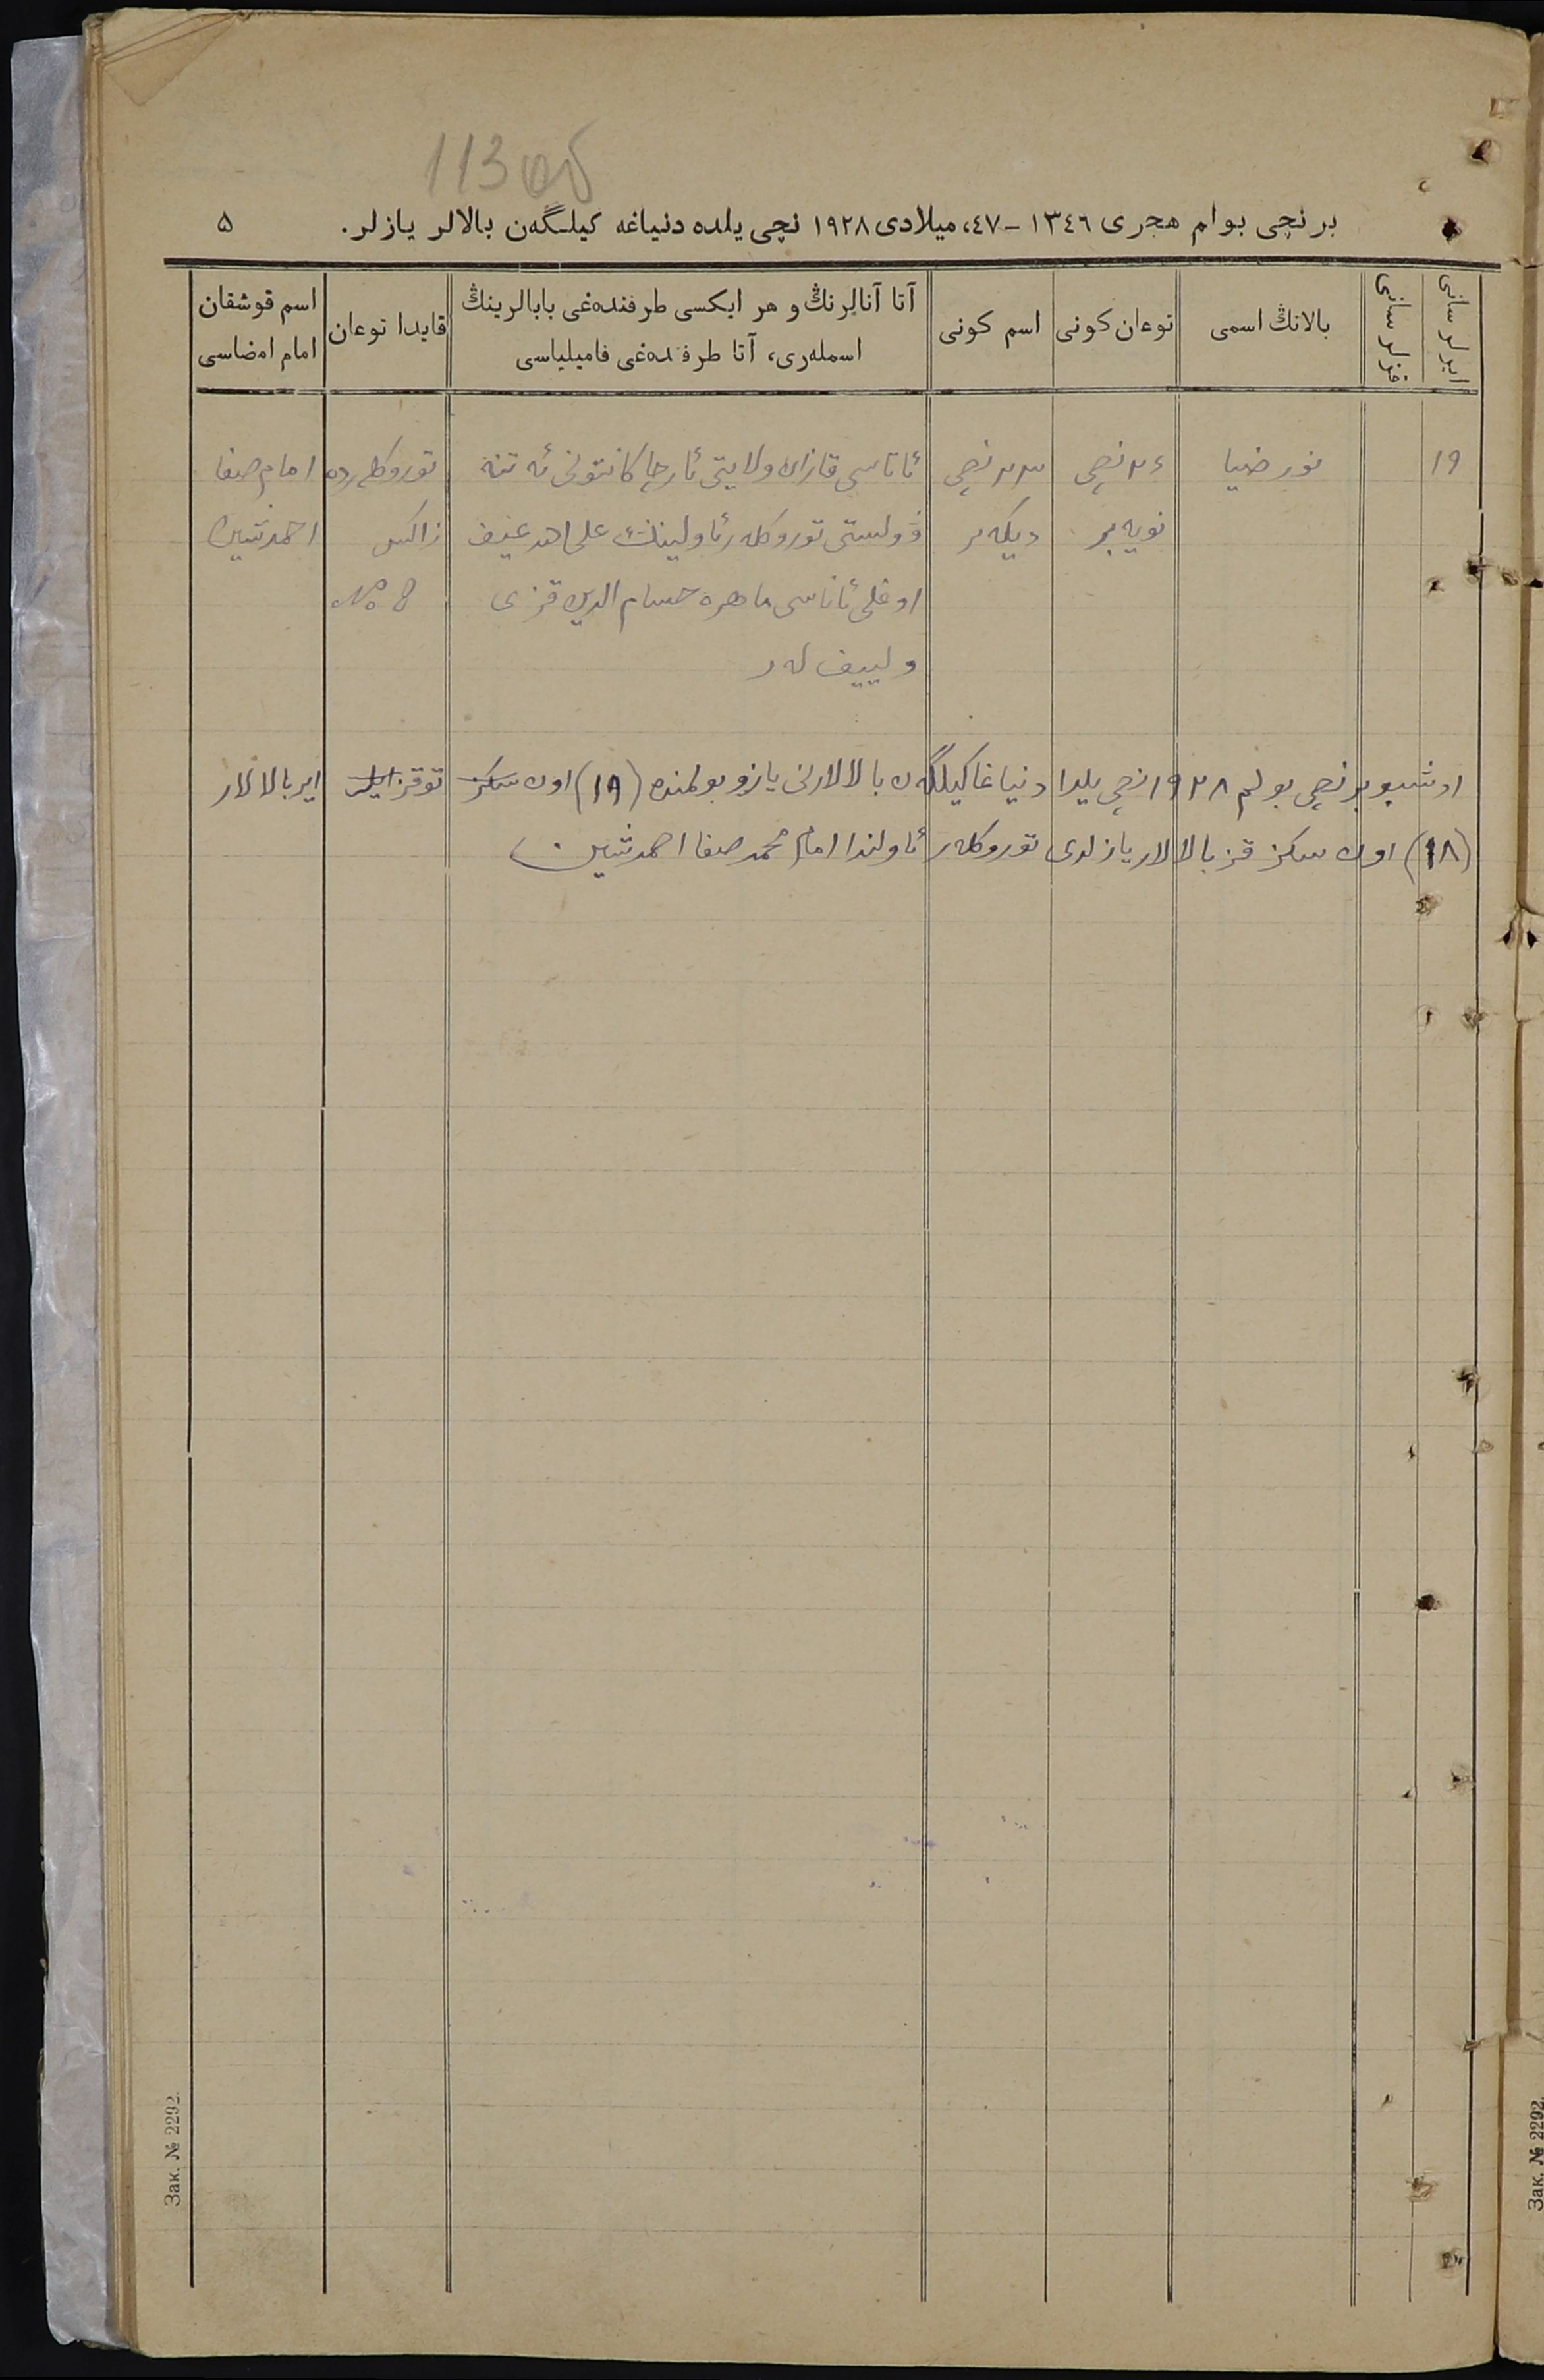 113 об
برنچی بوام هجری ١٣٤٦ - ٤٧، میلادی ١٩٢٨ نچی یلده دنیاغه کیلگەن بالالر یازلر.
۵
ایرلر سانی
قزلر سانی
بالانڭ اسمی
توعان کونی
اسم کونی
آتا آنالرنڭ و هر ایکسی طرفندەغی بابالرینڭ
اسملەری، آتا طرفندەغی فامیلیاسی
قایدا توعان
اسم قوشقان
امام امضاسی
١٩
نور ضیا
٢٤ نچی
نویەبر
٢٣ نچی
دیکەبر
ئاتاسی قازان ولایتی ئارچا کانتونی ئەتنە
ۋولستی توروکلەر ئاولینڭ علی
اوغلی ئاناسی ماهره حسام الدین قزی
ولییف لەر
توروکلەرده
زاکس
№ 8
امام صفا
احمدشین
اوشبو برنچی بولم ١٩٢٨ نچی یلدا دنیاغا کیلگەن بالالارنی یازو بولمنده (١٩) اون سکز توقز ایلر ایر بالالار
(١٨) اون سکز قز بالالار یازلدی توروکلەر ئاولندا امام محمد صفا احمدشین
Зак. № 2292.
Зак. № 2292.